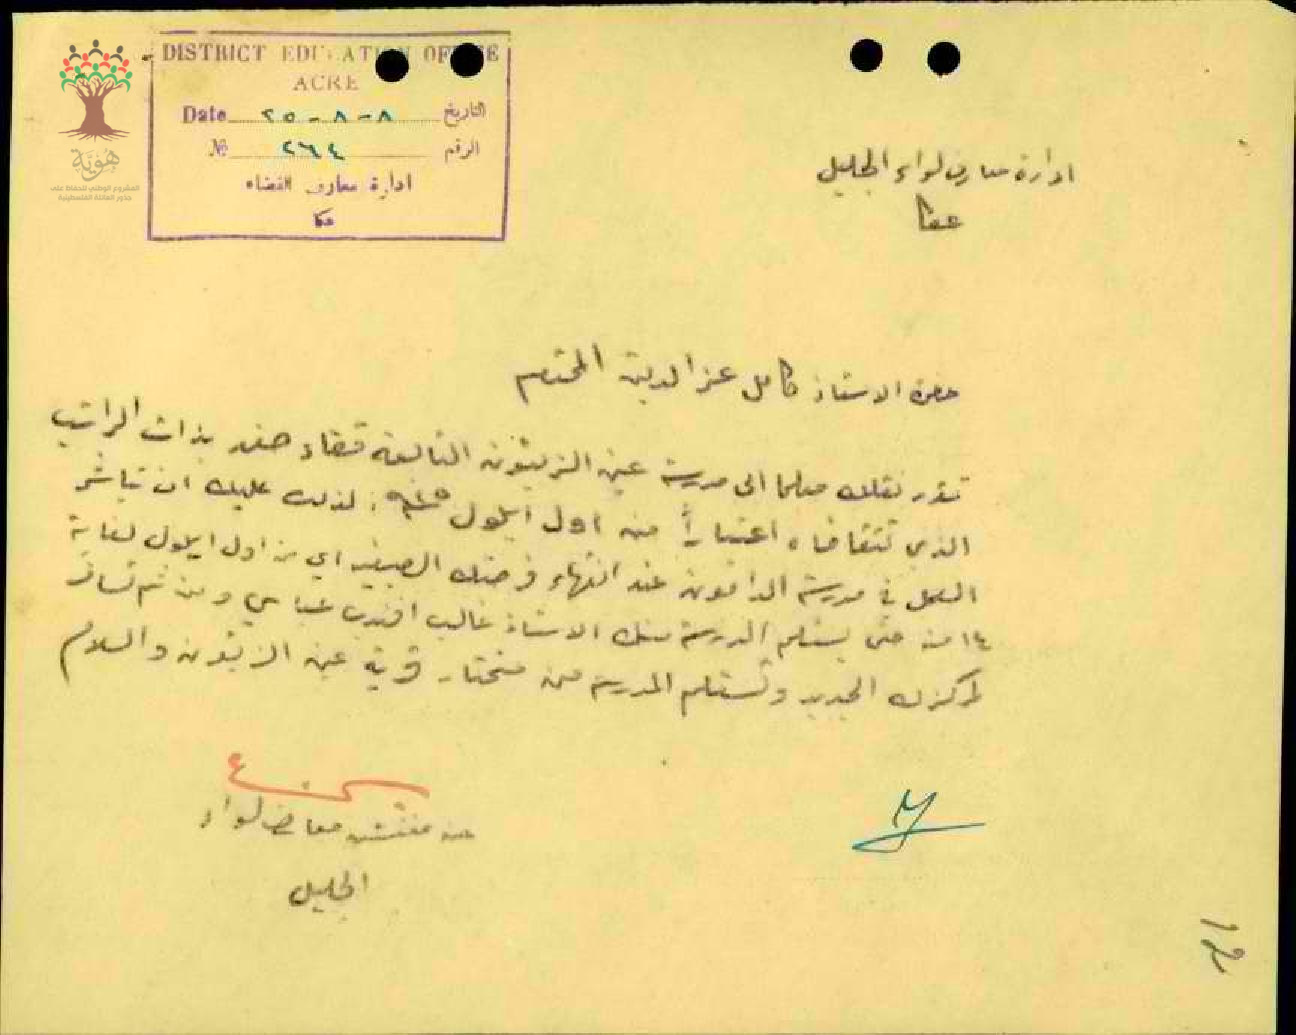 DISTRICT EDUCATION OFFICE
ACRE
Date ٨-٨-٢٥ التاريخ
№ ٢٦٤ الرقم
ادارة معارف القضاء
عكا
هُوِيَّة
المشروع الوطني للحفاظ على
جذور العائلة الفلسطينية
ادارة معارف لواء الجليل
عكا
حضرة الاستاذ كامل عز الدين المحترم
تقرر نقلك معلما الى مدرسة عين الزيتون التابعة قضاء صفد بذات الراتب
الذي تتقاضاه اعتباراً من اول ايلول لذلك عليك ان تباشر
العمل في مدرسة الدامون عند انتهاء فرصتك الصيفية اي من اول ايلول لغاية
١٤ منه حتى يستلم المدرسة منك الاستاذ غالب افندي عباسي ومن ثم تسافر
لمركزك الجديد وتستلم المدرسة من مختار قرية عين الزيتون والسلام
عن مفتش معارف لواء
الجليل